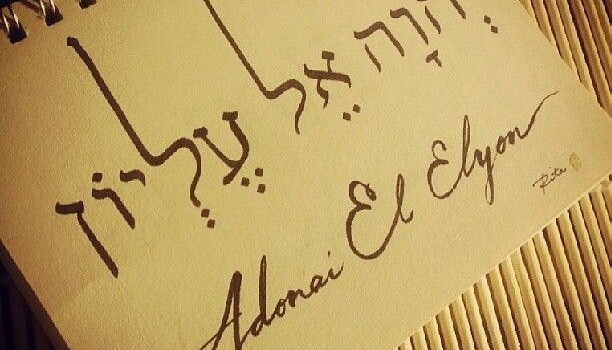 יְהוָה אֶל עֶלְיוֹן
Adonai El Elyon